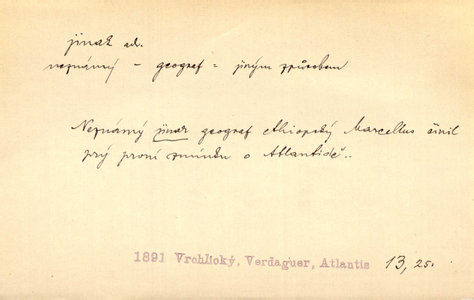 jinak adv.
neznámý – geograf = jiným způsobem
Neznámý jinak geograf ethiopský Marcellus činil
prý první zmínku o Atlantidě..
1891 Vrchlický, Verdaguer, Atlantis 13, 25.